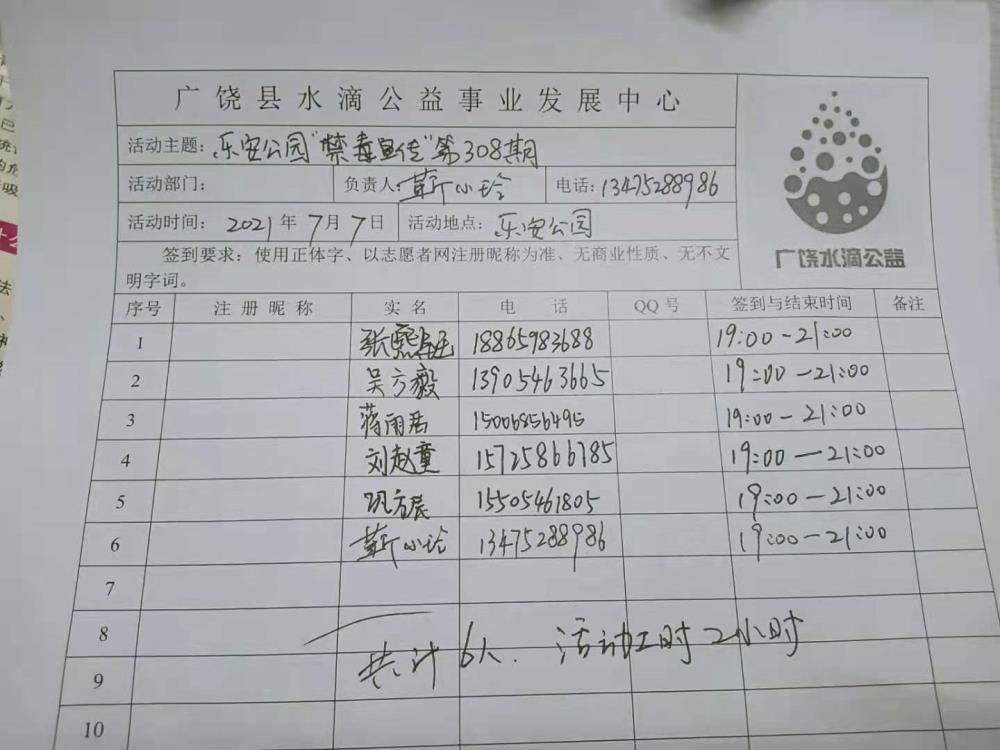 广饶县水滴公益事业发展中心
活动主题:乐安公园"禁毒宣传"第308期
活动部门: 负责人:靳小玲 电话:13475288986
活动时间: 2021年7月7日 活动地点:乐安公园
广饶水滴公益
签到要求:使用正体字、以志愿者网注册昵称为准、无商业性质、无不文
明字词。
序号 注册昵称 实名 电话 QQ号 签到与结束时间 备注
1 张熙 18865983688 19:00-21:00
2 吴方毅 13905463665 19:00-21:00
3 蒋雨君 15006856495 19:00-21:00
4 刘赵童 15725866785 19:00-21:00
5 巩方辰 15505461805 19:00-21:00
6 靳小玲 13475288986 19:00-21:00
7
8
共计6人. 活动工时2小时
9
10